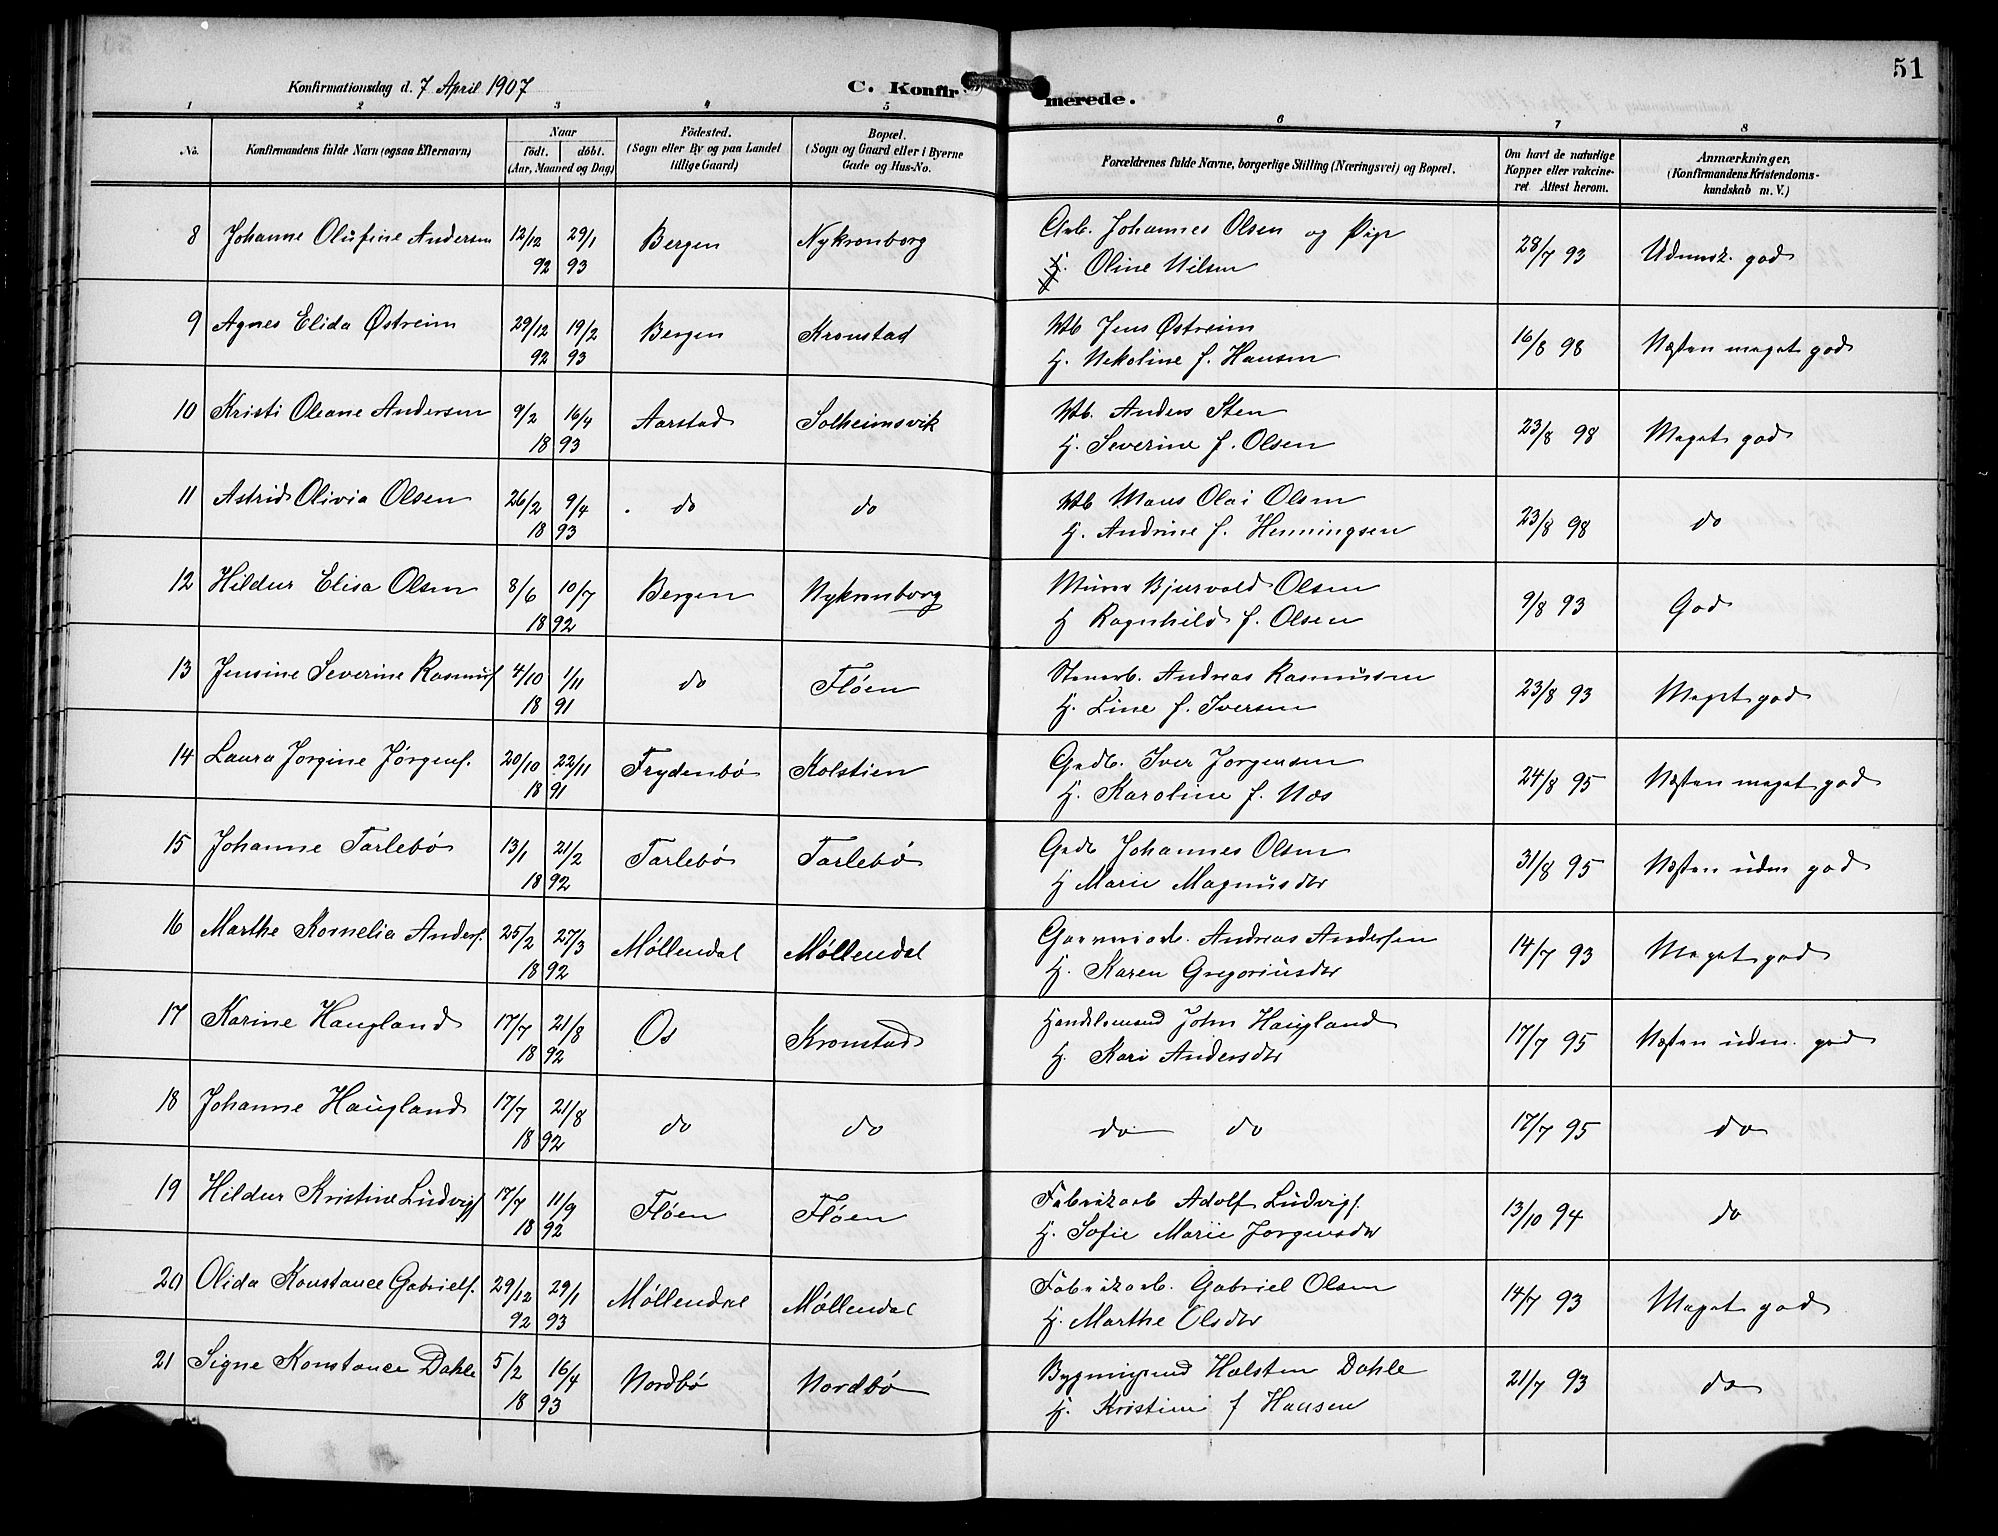 51
Konfirmationsdag d. 7 April 1907
C. Konfirmerede.
1 2 3 4 5 6 7 8
No.
Konfirmandens fulde Navn (ogsaa Efternavn)
Naar
født. döbt.
(Aar, Maaned og Dag)
Födested.
(Sogn eller By og paa Landet
tillige Gaard)
Bopæl.
(Sogn og Gaard eller i Byerne
Gade og Hus-No.
Forældrenes fulde Navne, borgerlige Stilling (Næringsvei) og Bopæl.
Om havt de naturlige
Kopper eller vakcine-
ret Attest herom.
Anmærkninger.
(Konfirmandens Kristendoms-
kundskab m. V.)
8 Johanne Olufine Andersen 12/12 29/1 Bergen Nykronborg Arb. Johannes Olsen og Pige 28/7 93 Udmerk. god
92 93 Oline Nilsen
9 Agnes Elida Østreim 29/12 19/2 Bergen Kronstad Jens Østreim 16/8 98 Næsten meget god
92 93 H. Nekoline f. Hansen
10 Kristi Oleane Andersen 9/2 16/4 Aarstad Solheimsvik Anders Sten 23/8 98 Meget god
18 93 H. Severine f. Olsen
11 Astrid Olivia Olsen 26/2 9/4 do do Mons Olai Olsen 23/8 98 do
18 93 H. Andrine f. Henningsen
12 Hildur Elisa Olsen 8/6 10/7 Bergen Nykronborg Murer Bjurvald Olsen 9/8 93 God
18 92 H Ragnhild f. Olsen
13 Jensine Severine Rasmusf 4/10 1/11 do Fløen Stenarb. Andreas Rasmussen 23/8 93 Meget god
18 91 H. Line f. Iversen
14 Laura Jorgine Jørgenf. 20/10 22/11 Frydenbø Kolstien Gadb. Iver Jorgensen 24/8 95 Næsten meget god
18 91 H. Karoline f. Næs
15 Johanne Tarlebø 13/1 21/2 Tarlebø Tarlebø Gadb Johannes Olsen 31/8 95 Næsten udm god
18 92 H Marie Magnusdtr
16 Marthe Kornelia Andersf. 25/2 27/3 Møllendal Møllendal Garveriarb. Andreas Andersen 14/7 93 Meget god
18 92 H. Karen Gregoriusdtr
17 Karine Haugland 17/7 21/8 Os Kronstad Handelsmand John Haugland 17/7 95 Næsten udm. god
18 92 H. Kari Andersdtr
18 Johanne Haugland 17/7 21/8 do do do do 17/7 95 do
18 92
19 Hildur Kristine Ludvigf 17/7 11/9 Fløen Fløen Fabrikarb Adolf Ludvigf. 13/10 94 do
18 92 H. Sofie Marie Jorgensdtr
20 Olida Konstance Gabrielf. 29/12 29/1 Møllendal Møllendal Fabrikarb. Gabriel Olsen 14/7 93 Meget god
92 93 H. Marthe Olsdtr
21 Signe Konstance Dahle 5/2 16/4 Nordbø Nordbø Halsten Dahle 21/7 93 do
18 93 H. Kristine f Hansen